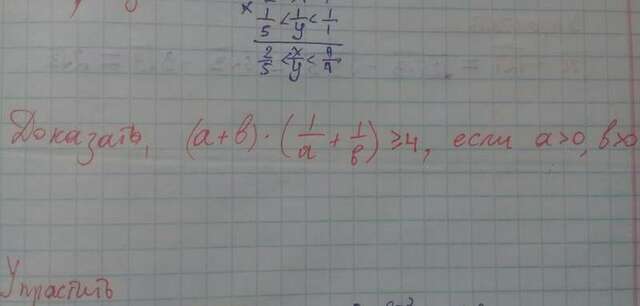 × 1/5 < 1/y < 1/1
2/5 < x/y < 4/1
Доказать, (a+b)·(1/a + 1/b) ≥ 4, если a>0, b>0
Упрастить